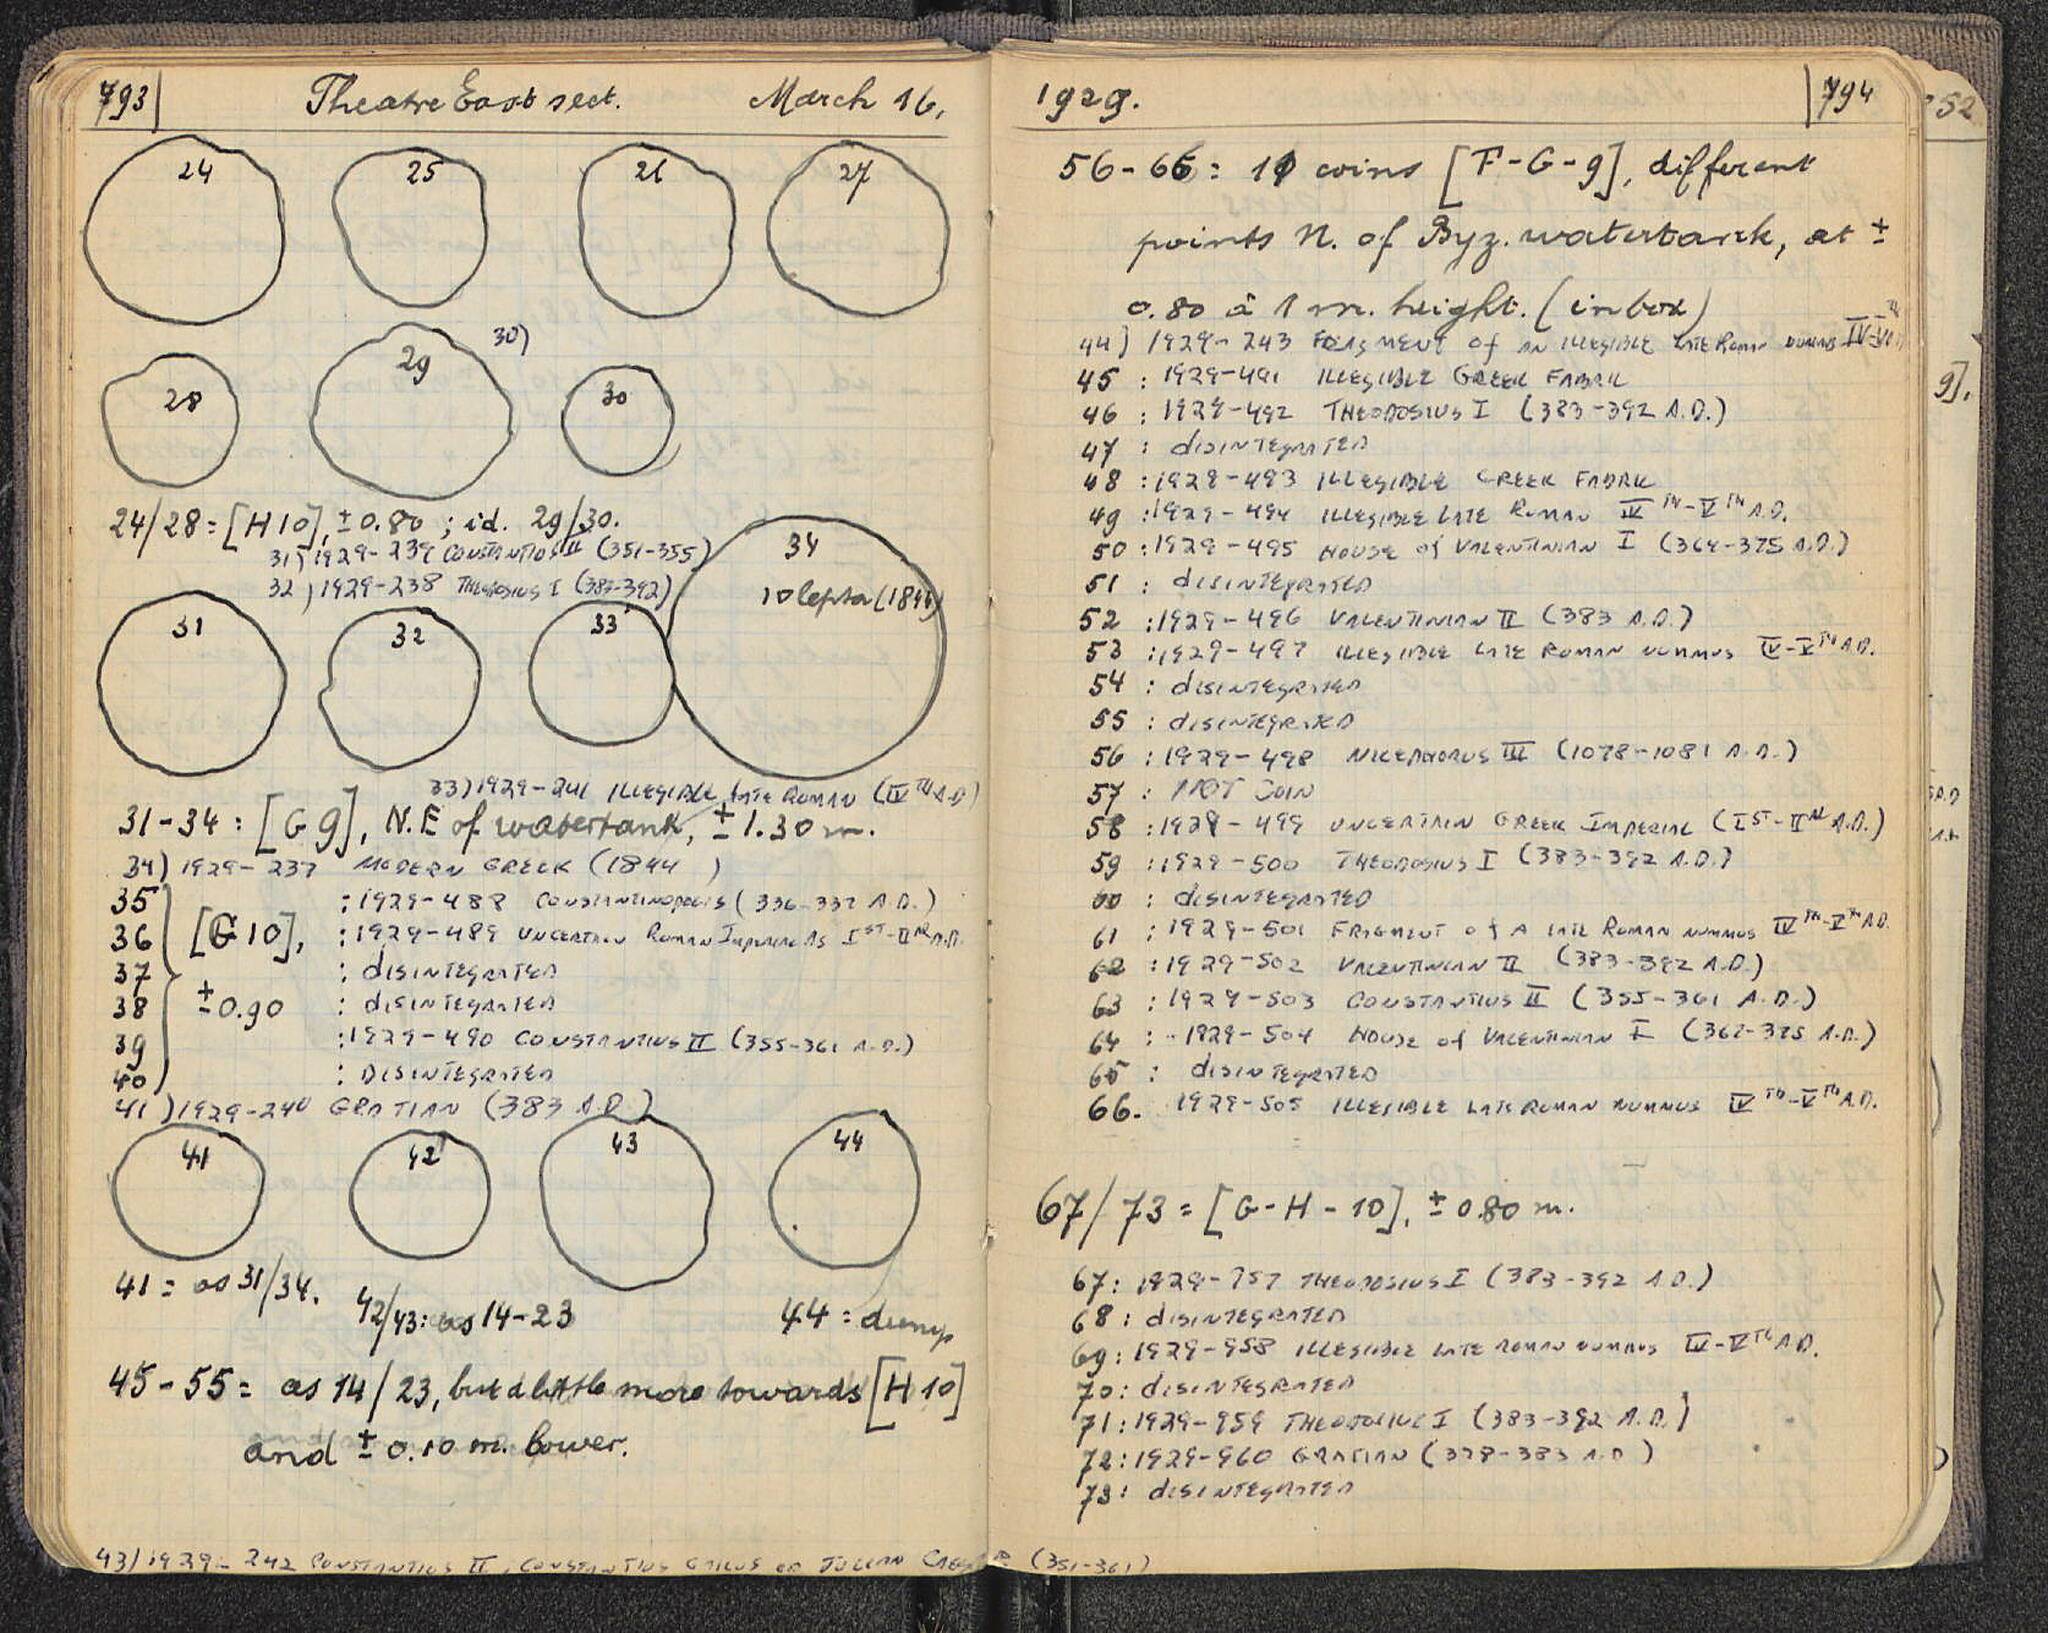 793 Theatre East sect. March 16,
24 25 26 27
30)
28 29 30
24/28 = [H10], ±0.80 ; id. 29/30.
31) 1929-239 CONSTANTIUS II (351-355)
32) 1929-238 THEODOSIUS I (383-392)
34
10 lepta (1844)
31 32 33
33) 1929-241 ILLEGIBLE LATE ROMAN (IVTH A.D)
31-34: [G9], N.E of watertank, ±1.30 m.
34) 1929-237 MODERN GREEK (1844 )
35 : 1929-488 CONSTANTINOPOLIS (336-337 A.D.)
36 [G10], : 1929-489 UNCERTAIN ROMAN IMPERIAL AS IST-IIND A.D.
37 : DISINTEGRATED
38 ±0.90 : DISINTEGRATED
39 : 1929-490 CONSTANTIUS II (355-361 A.D.)
40 : DISINTEGRATED
41) 1929-240 GRATIAN (383 A.D.)
41 42 43 44
41 = as 31/34.
42/43: as 14-23
44 = dump
45-55 = as 14/23, but a little more towards [H10]
and ±0.10 m. lower.
43) 1929-242 CONSTANTIUS II, CONSTANTIUS GALLUS OR JULIAN CAESAR (351-361)
1929. 794
56-66 = 11 coins [F-G-9], different
points N. of Byz. watertank, at ±
0.80 à 1 m. height. (in box)
44) 1929-243 FRAGMENT OF AN ILLEGIBLE LATE ROMAN NUMMUS
45 : 1929-491 ILLEGIBLE GREEK FABRIC
46 : 1929-492 THEODOSIUS I (383-392 A.D.)
47 : DISINTEGRATED
48 : 1929-493 ILLEGIBLE GREEK FABRIC
49 : 1929-494 ILLEGIBLE LATE ROMAN IVTH-VTH A.D.
50 : 1929-495 HOUSE OF VALENTINIAN I (364-375 A.D.)
51 : DISINTEGRATED
52 : 1929-496 VALENTINIAN II (383 A.D.)
53 : 1929-497 ILLEGIBLE LATE ROMAN NUMMUS IV-VTH A.D.
54 : DISINTEGRATED
55 : DISINTEGRATED
56 : 1929-498 NICEPHORUS III (1078-1081 A.D.)
57 : NOT COIN
58 : 1929-499 UNCERTAIN GREEK IMPERIAL (IST-IIND A.D.)
59 : 1929-500 THEODOSIUS I (383-392 A.D.)
60 : DISINTEGRATED
61 : 1929-501 FRAGMENT OF A LATE ROMAN NUMMUS IVTH-VTH A.D.
62 : 1929-502 VALENTINIAN II (383-392 A.D.)
63 : 1929-503 CONSTANTIUS II (355-361 A.D.)
64 : 1929-504 HOUSE OF VALENTINIAN I (367-375 A.D.)
65 : DISINTEGRATED
66. 1929-505 ILLEGIBLE LATE ROMAN NUMMUS IVTH-VTH A.D.
67/73 = [G-H-10], ±0.80 m.
67: 1929-957 THEODOSIUS I (383-392 A.D.)
68: DISINTEGRATED
69: 1929-958 ILLEGIBLE LATE ROMAN NUMMUS IV-VTH A.D.
70: DISINTEGRATED
71: 1929-959 THEODOSIUS I (383-392 A.D.)
72: 1929-960 GRATIAN (378-383 A.D.)
73: DISINTEGRATED
52
9].